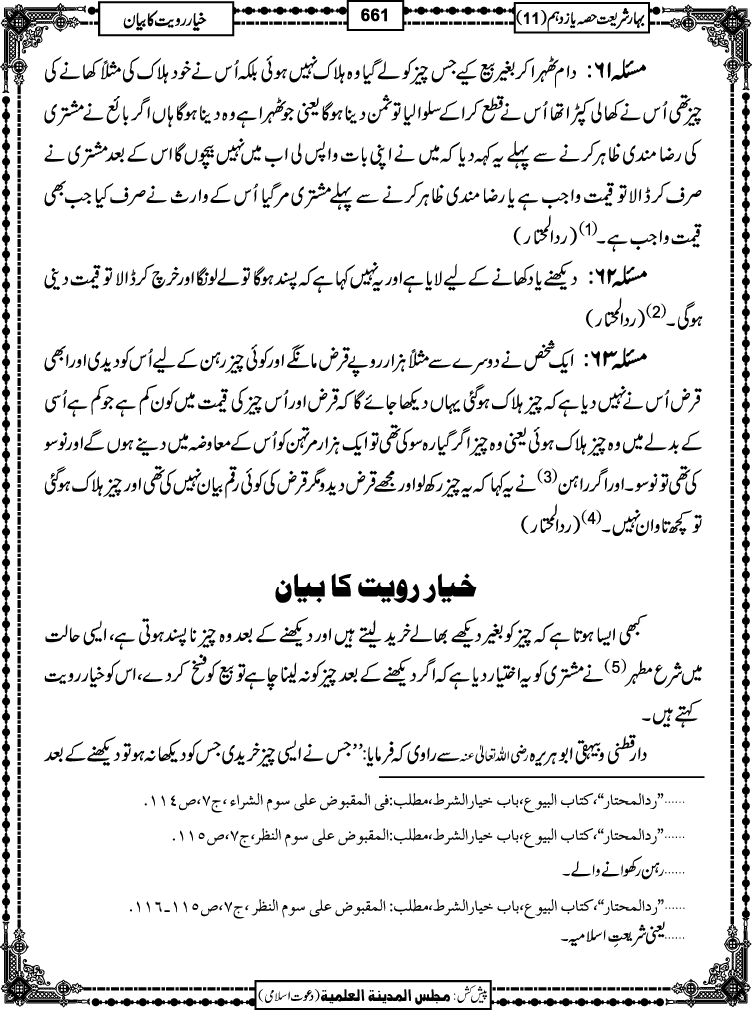 بہار شریعت حصہ یازدہم (11)
661
خیار رویت کا بیان
مسئلہ ۶۱: دام ٹھہرا کر بغیر بیع کیے جس چیز کو لے گیا وہ ہلاک نہیں ہوئی بلکہ اُس نے خود ہلاک کی مثلاً کھانے کی
چیز تھی اُس نے کھالی کپڑا تھا اُس نے قطع کرا کے سلوالیا تو ثمن دینا ہوگا یعنی جو ٹھہرا ہے وہ دینا ہوگا ہاں اگر بائع نے مشتری
کی رضا مندی ظاہر کرنے سے پہلے یہ کہہ دیا کہ میں نے اپنی بات واپس لی اب میں نہیں بیچوں گا اس کے بعد مشتری نے
صرف کر ڈالا تو قیمت واجب ہے یا رضا مندی ظاہر کرنے سے پہلے مشتری مرگیا اُس کے وارث نے صرف کیا جب بھی
قیمت واجب ہے۔(1) (ردالمحتار)
مسئلہ ۶۲: دیکھنے یا دکھانے کے لیے لایا ہے اور یہ نہیں کہا ہے کہ پسند ہوگا تو لے لونگا اور خرچ کر ڈالا تو قیمت دینی
ہوگی۔(2) (ردالمحتار)
مسئلہ ۶۳: ایک شخص نے دوسرے سے مثلاً ہزار روپے قرض مانگے اور کوئی چیز رہن کے لیے اُس کو دیدی اور ابھی
قرض اُس نے نہیں دیا ہے کہ چیز ہلاک ہوگئی یہاں دیکھا جائے گا کہ قرض اور اُس چیز کی قیمت میں کون کم ہے جو کم ہے اُسی
کے بدلے میں وہ چیز ہلاک ہوئی یعنی وہ چیز اگر گیارہ سو کی تھی تو ایک ہزار مرتہن کو اُس کے معاوضہ میں دینے ہوں گے اور نوسو
کی تھی تو نوسو۔ اور اگر راہن (3) نے یہ کہا کہ یہ چیز رکھ لو اور مجھے قرض دیدو مگر قرض کی کوئی رقم بیان نہیں کی تھی اور چیز ہلاک ہوگئی
تو کچھ تاوان نہیں۔(4) (ردالمحتار)
خیار رویت کا بیان
کبھی ایسا ہوتا ہے کہ چیز کو بغیر دیکھے بھالے خرید لیتے ہیں اور دیکھنے کے بعد وہ چیز ناپسند ہوتی ہے، ایسی حالت
میں شرع مطہر (5) نے مشتری کو یہ اختیار دیا ہے کہ اگر دیکھنے کے بعد چیز کو نہ لینا چاہے تو بیع کو فسخ کردے، اس کو خیار رویت
کہتے ہیں۔
دارقطنی و بیہقی ابوہریرہ رضی اللہ تعالیٰ عنہ سے راوی کہ فرمایا: ’’جس نے ایسی چیز خریدی جس کو دیکھا نہ ہو تو دیکھنے کے بعد
......”ردالمحتار“، کتاب البیوع، باب خیارالشرط، مطلب: فی المقبوض علی سوم الشراء، ج۷، ص۱۱٤.
......”ردالمحتار“، کتاب البیوع، باب خیارالشرط، مطلب: المقبوض علی سوم النظر، ج۷، ص۱۱۵.
......رہن رکھوانے والے۔
......”ردالمحتار“، کتاب البیوع، باب خیارالشرط، مطلب: المقبوض علی سوم النظر، ج۷، ص۱۱۵۔۱۱۶.
......یعنی شریعتِ اسلامیہ۔
پیش کش: مجلس المدینة العلمیة (دعوت اسلامی)